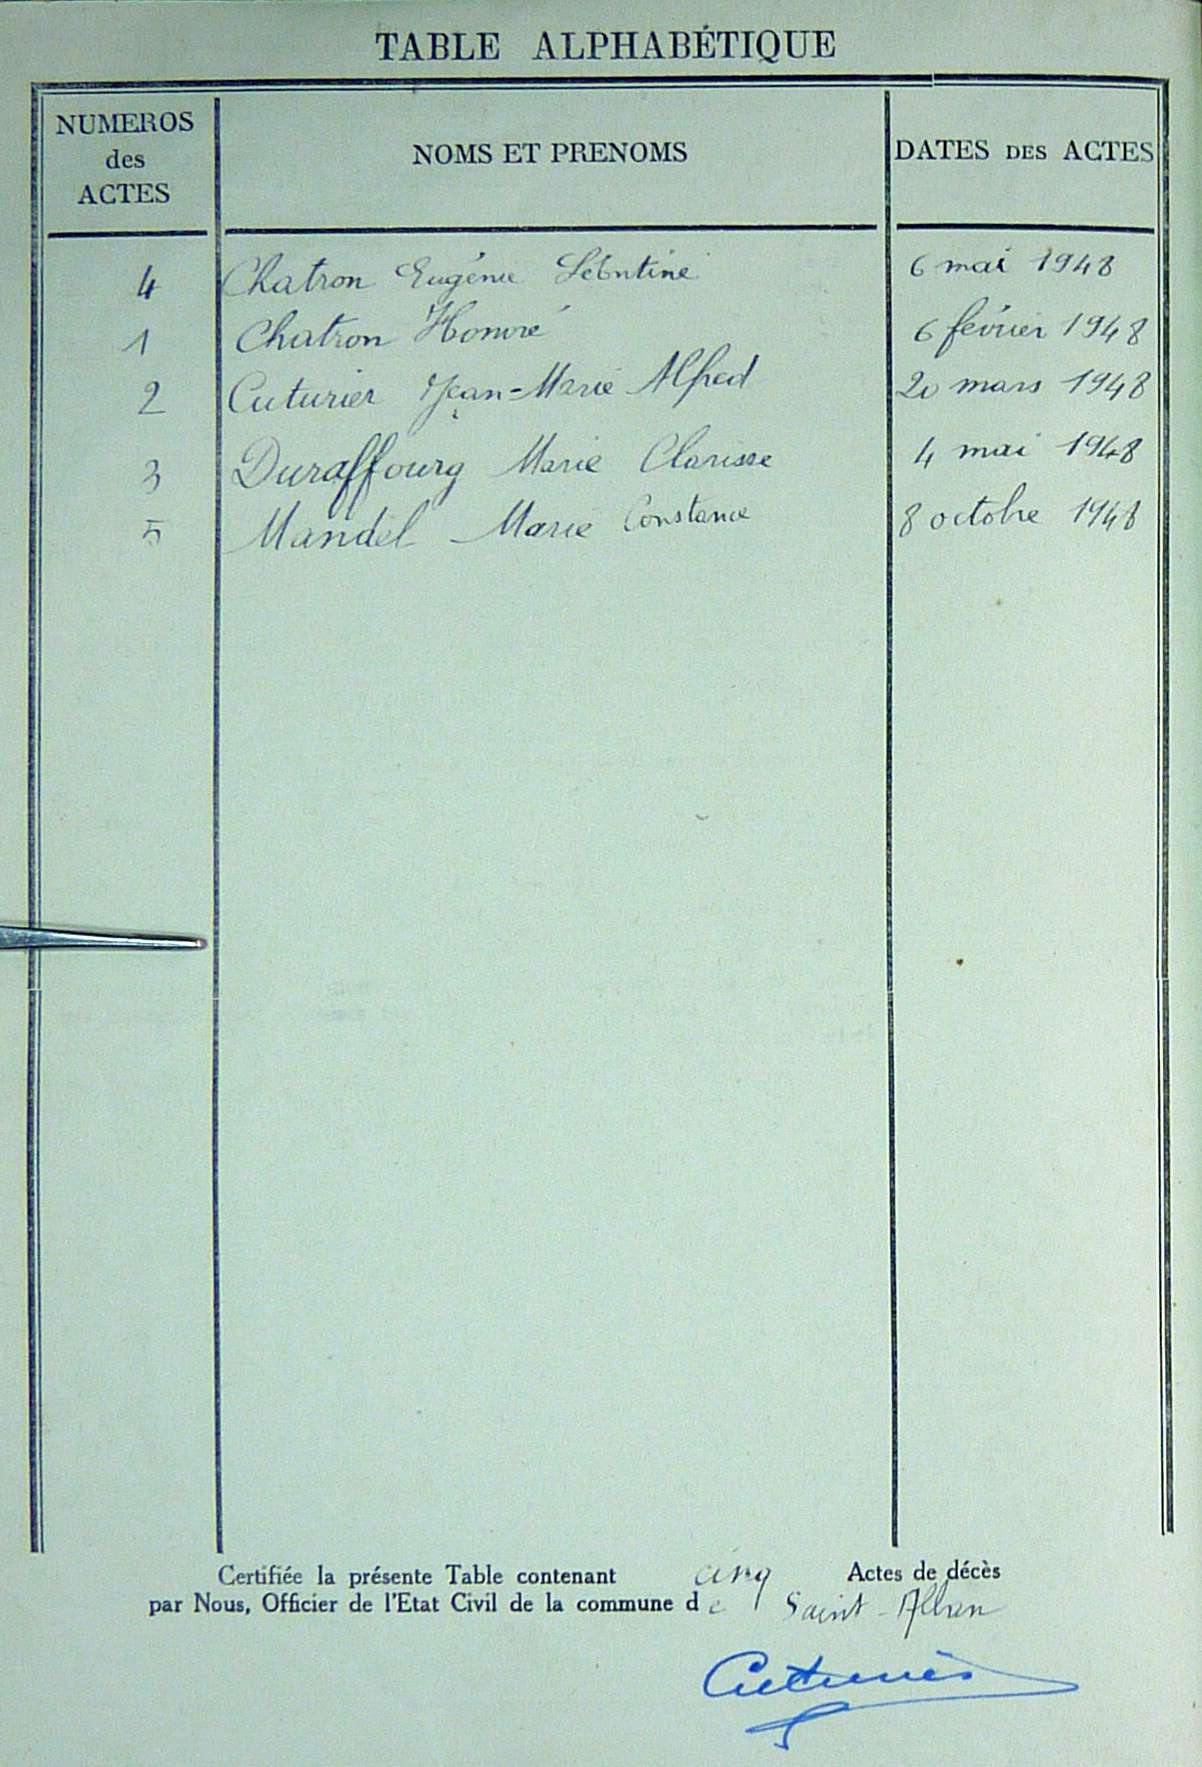 TABLE ALPHABÉTIQUE
NUMEROS des ACTES NOMS ET PRENOMS DATES DES ACTES
4 Chatron Eugénie Léontine 6 mai 1948
1 Chatron Honoré 6 février 1948
2 Cuturier Jean-Marie Alfred 20 mars 1948
3 Duraffourg Marie Clarisse 4 mai 1948
5 Mandel Marie Constance 8 octobre 1948
Certifiée la présente Table contenant cinq Actes de décès
par Nous, Officier de l'Etat Civil de la commune de Saint-Alban
Cuturier